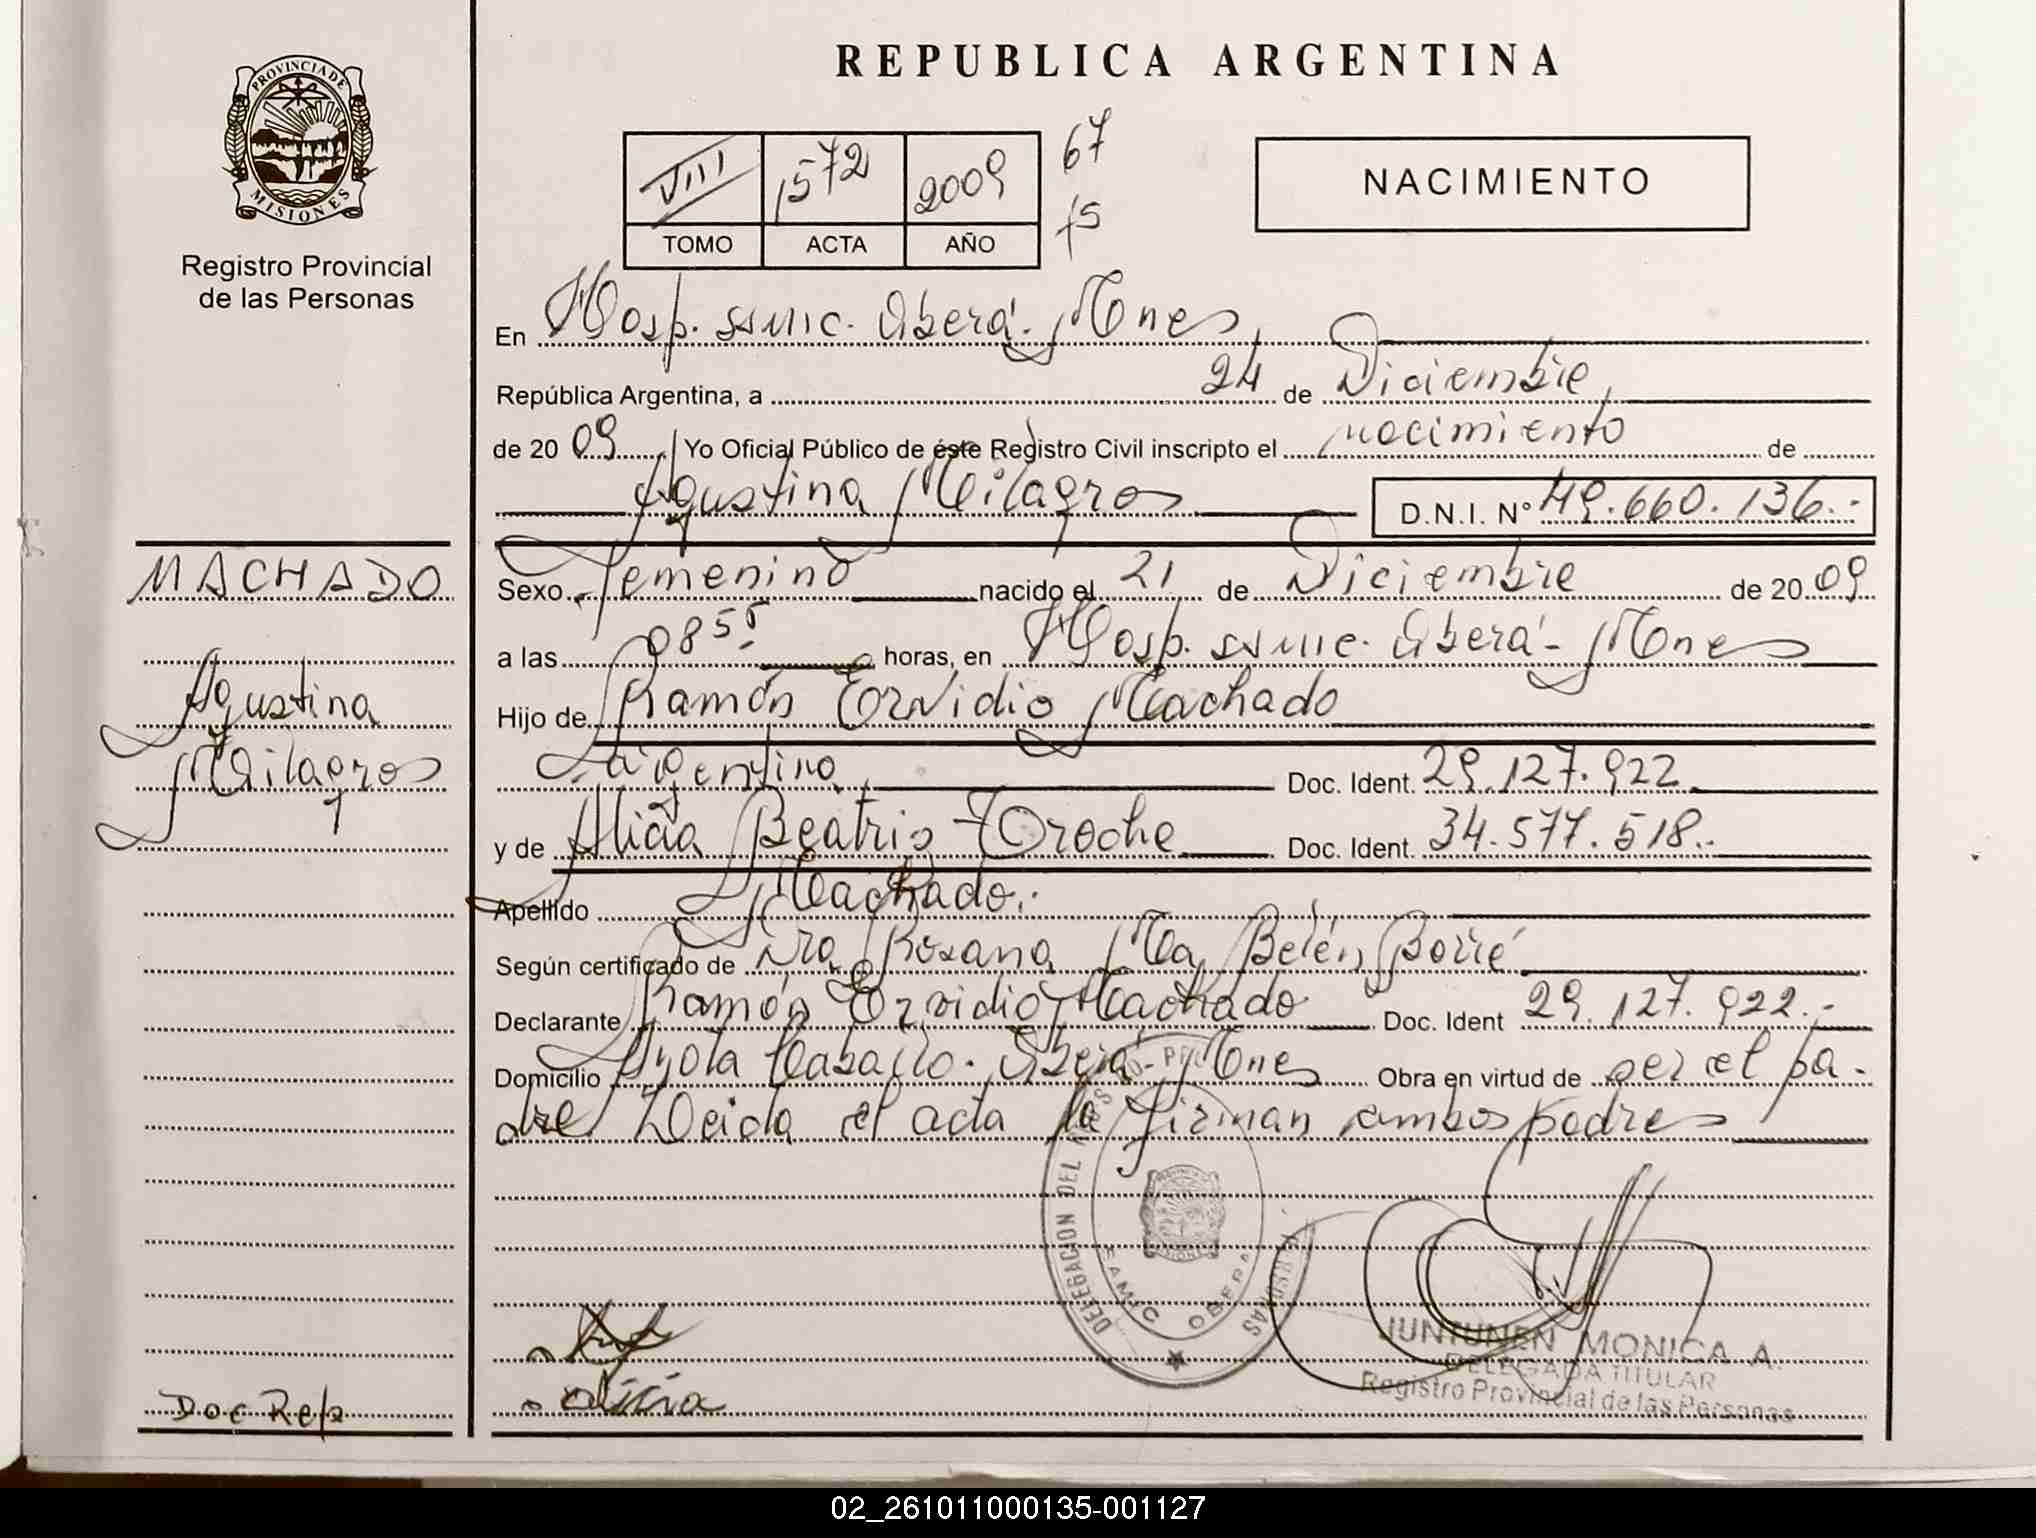 PROVINCIA DE
MISIONES
Registro Provincial
de las Personas
REPUBLICA ARGENTINA
VIII 1572 2009 67
TOMO ACTA AÑO 75
NACIMIENTO
En Hosp. SAMIC. Oberá. Mnes,
República Argentina, a 24 de Diciembre,
de 20 09 Yo Oficial Público de éste Registro Civil inscripto el nacimiento de
Agustina Milagros D.N.I. Nº 49.660.136.-
MACHADO
Agustina
Milagros
Sexo Femenino nacido el 21 de Diciembre de 20 09
a las 08 55 horas, en Hosp. SAMIC. Oberá - Mnes
Hijo de Ramón Ervidio Machado
Argentino, Doc. Ident. 29.127.922
y de Alicia Beatris Toroche Doc. Ident. 34.577.518.-
Apellido Machado.-
Según certificado de Dra. Rosana Ma Belén Borré
Declarante Ramón Ervidio Machado Doc. Ident 29.127.922.-
Domicilio Oberá - Mnes Obra en virtud de ser el pa-
dre Leida el acta la firman ambos padres
DELEGACION DEL
SAMIC OBERA
Alicia
JUNTUNEN MONICA A.
DELEGADA TITULAR
Registro Provincial de las Personas
Doc Rep
02_261011000135-001127